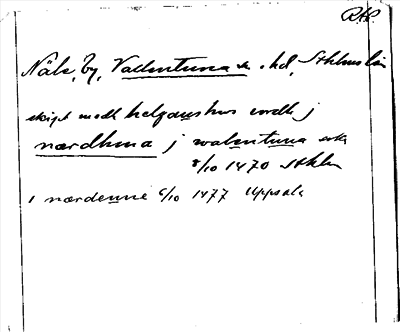 RAP.
Näle, by, Vallentuna sn o. hd, Sthlms län
skipt medh helgans hws iordh j
nærdhina j walentuna sokn
8/10 1470 Sthlm
i nærdenne 6/10 1477 Uppsala